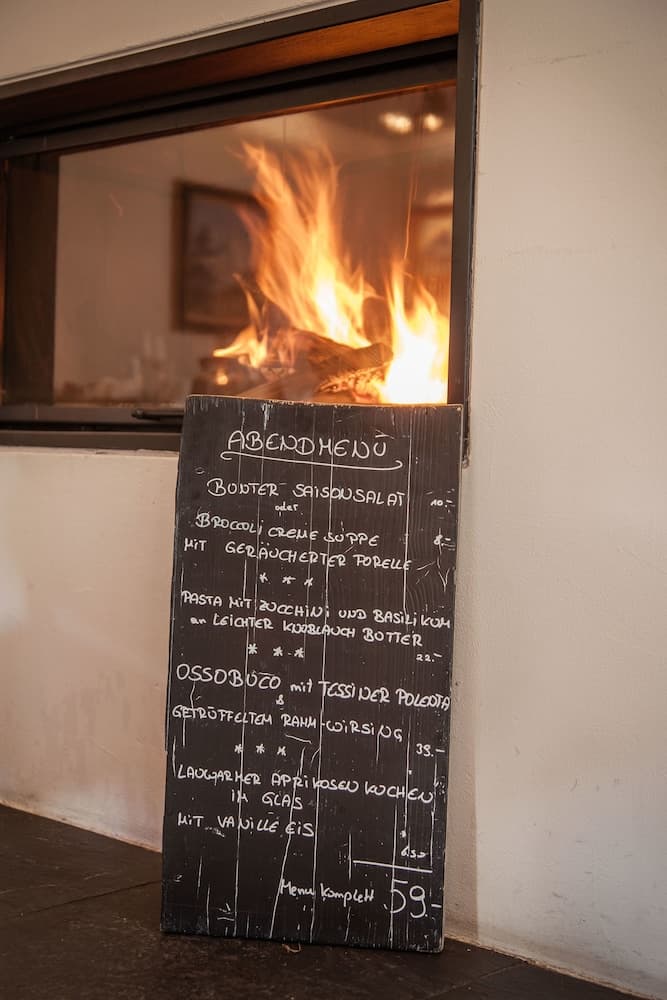 ABENDMENÜ
BUNTER SAISONSALAT 10.-
oder
BROCCOLI CREME SUPPE 8.-
MIT GERÄUCHERTER FORELLE
* * *
PASTA MIT ZUCCHINI UND BASILIKUM
an LEICHTER KNOBLAUCH BUTTER
22.-
* * *
OSSOBUCO mit TESSINER POLENTA
&
GETRÜFFELTEM RAHM-WIRSING
39.-
* * *
LAUWARMER APRIKOSEN KUCHEN
IM GLAS
MIT VANILLE EIS
6.50
Menu Komplett 59.-